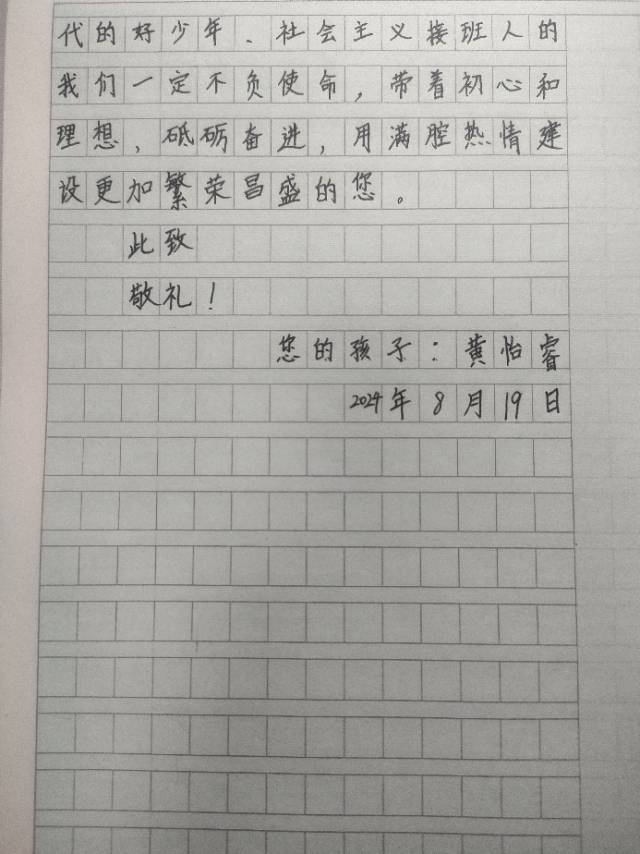 代的好少年、社会主义接班人的
我们一定不负使命，带着初心和
理想，砥砺奋进，用满腔热情建
设更加繁荣昌盛的您。
此致
敬礼！
您的孩子：黄怡睿
2024年8月19日